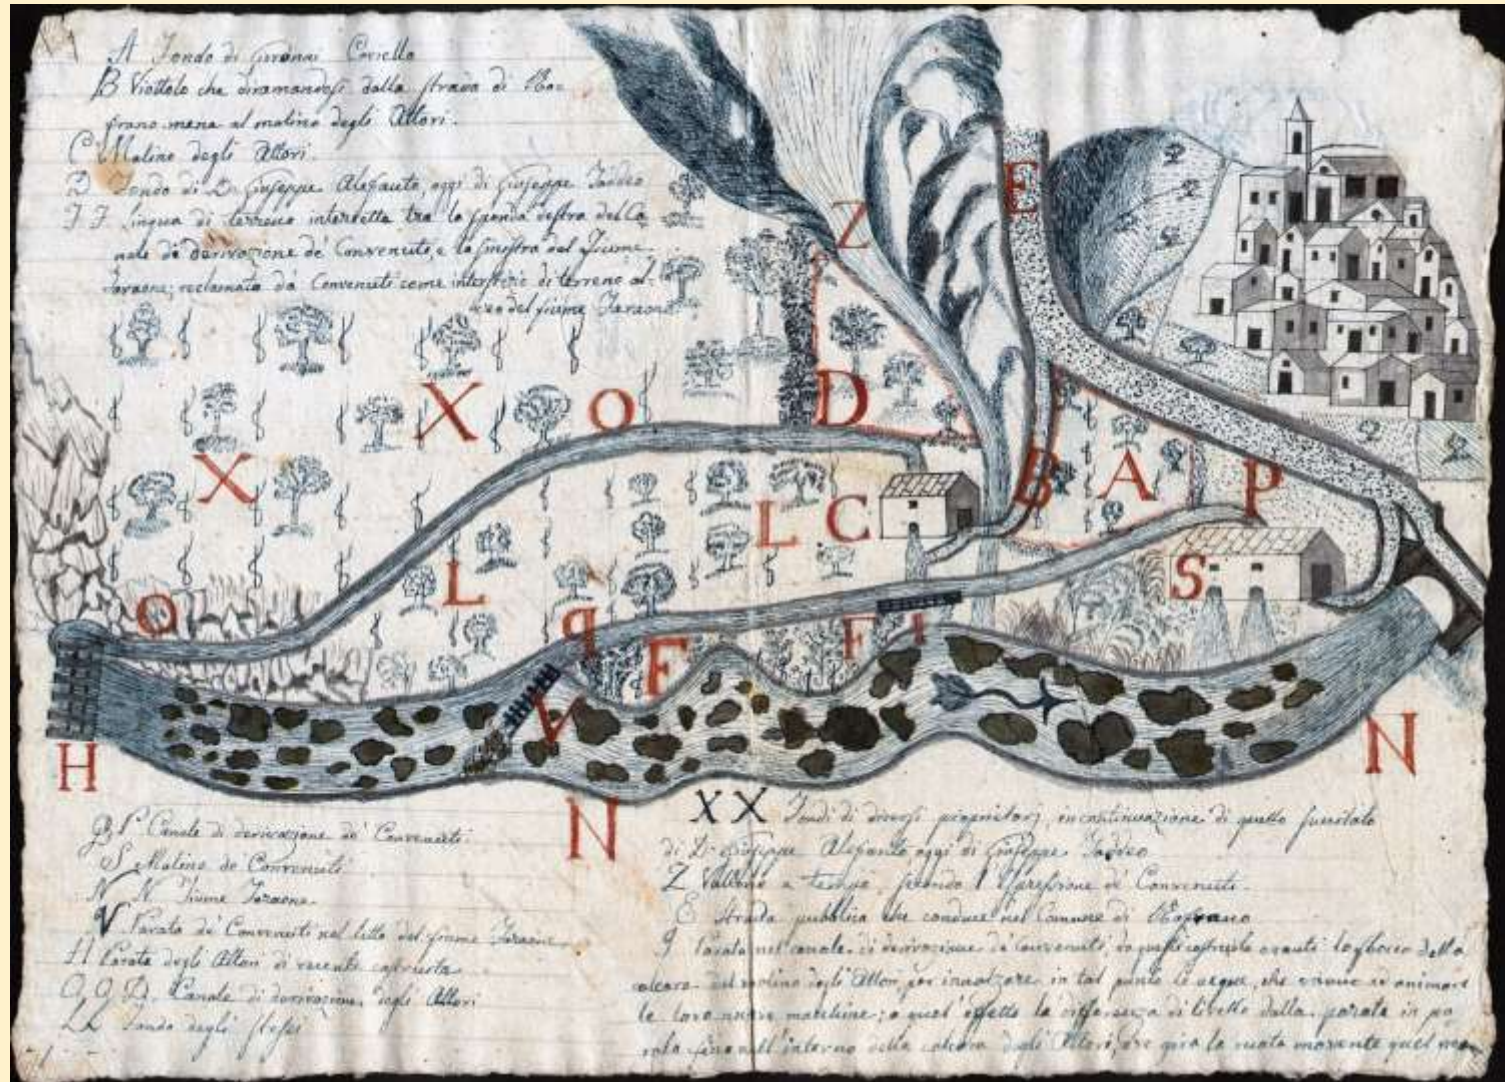 A Fondo di Giovanni Coriello
B Viottolo che diramandosi dalla strada di Ro=
frano mena al molino degli Attori.
C Molino degli Attori.
D Fondo di D. Giuseppe Alefanto, oggi di Giuseppe Taddeo
F F Lingua di terreno intercetta tra la sponda destra del Ca=
nale di derivazione de' Convenuti, e la sinistra del Fiume
Faraone; reclamata da' Convenuti come di terreno al=
veo del fiume Faraone.
Z
E
X
O
D
X
B
A
P
L
C
O
L
S
q
F
F
I
V
H
N
N
P Canale di derivazione de' Convenuti.
S Molino de' Convenuti
N N Fiume Faraone
V Parata de' Convenuti nel letto del fiume Faraone
H Parata degli Attori di recente costruita
O, O, D Canale di derivazione degli Attori
LL Fondo degli stessi
XX Fondi di diversi proprietarj, in continuazione di quello
di D. Giuseppe Alefanto oggi di Giuseppe Taddeo
Z Vallone a tempo, secondo l'espressione de' Convenuti.
E Strada pubblica che conduce nel Comune di Rofrano
q Parata nel canale di derivazione de' Convenuti, da questi costruita avanti lo sbocco della
del molino degli Attori, per innalzare in tal punto le acque, che animare
le loro macchine; a qual effetto la differenza di livello dalla parata in pa=
rola fino nell'interno della degli Attori, ove gira la ruota movente quel